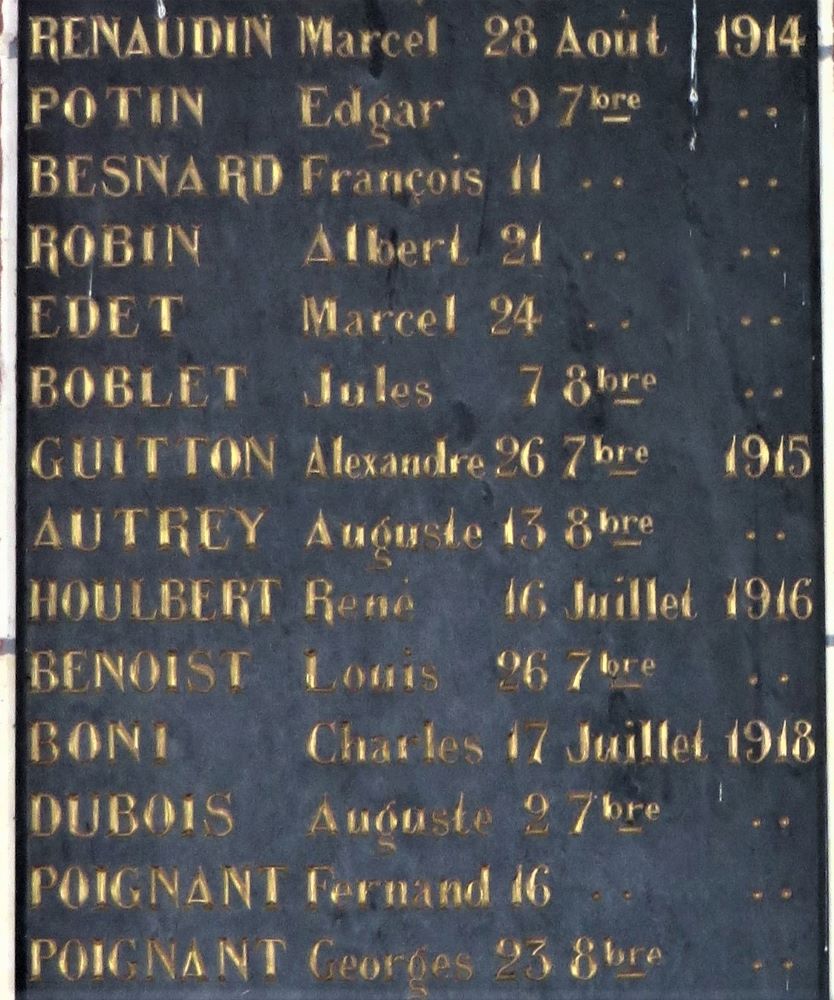 RENAUDIN Marcel 28 Août 1914
POTIN Edgar 9 7bre . .
BESNARD François 11 . . . .
ROBIN Albert 21 . . . .
EDET Marcel 24 . . . .
BOBLET Jules 7 8bre . .
GUITTON Alexandre 26 7bre 1915
AUTREY Auguste 13 8bre . .
HOULBERT René 16 Juillet 1916
BENOIST Louis 26 7bre . .
BONI Charles 17 Juillet 1918
DUBOIS Auguste 2 7bre . .
POIGNANT Fernand 16 . . . .
POIGNANT Georges 23 8bre . .